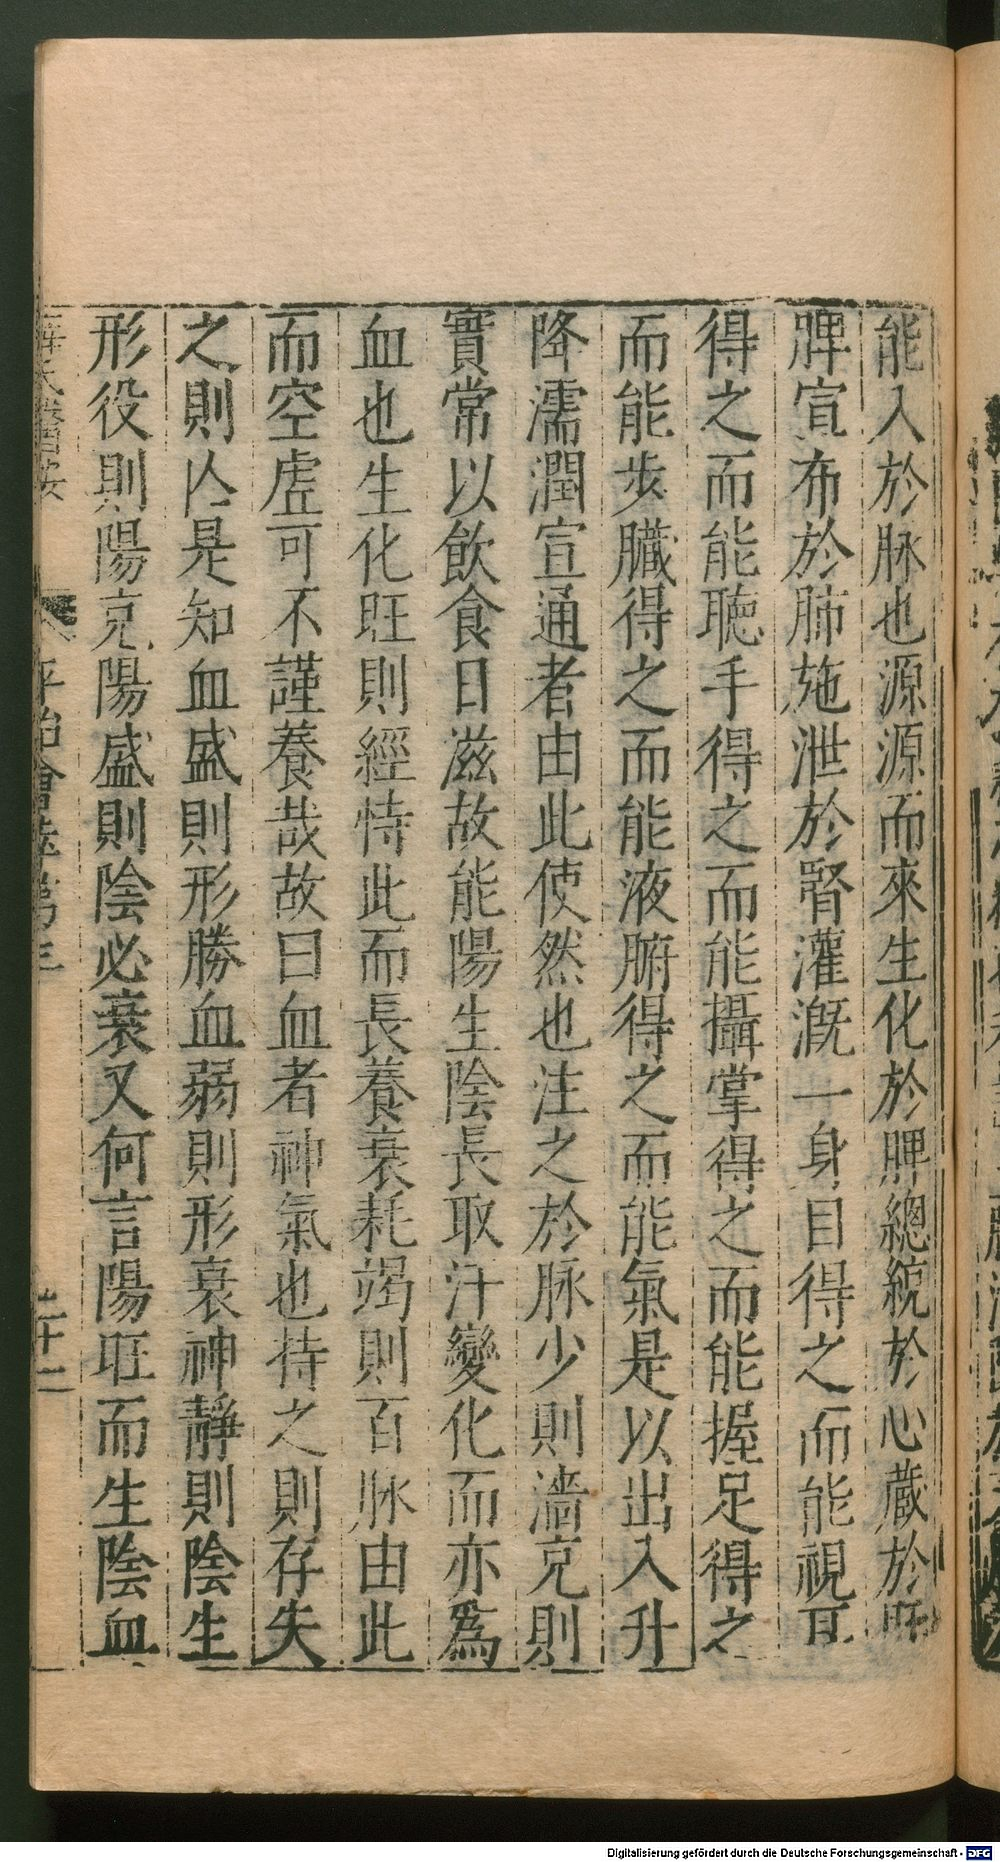 能入於脉也源源而來生化於脾總統於心藏於肝
脾宣布於肺施泄於腎灌溉一身目得之而能視耳
得之而能聴手得之而能攝掌得之而能握足得之
而能步臟得之而能液腑得之而能氣是以出入升
降濡潤宣通者由此使然也注之於脉少則濇充則
實常以飲食日滋故能陽生陰長取汗變化而亦爲
血也生化旺則經恃此而長養衰耗竭則百脉由此
而空虗可不謹養哉故曰血者神氣也持之則存失
之則亾是知血盛則形勝血弱則形衰神静則陰生
形役則陽亢陽盛則陰必衰又何言陽旺而生陰血
平治會萃第三
二十二
Digitalisierung gefördert durch die Deutsche Forschungsgemeinschaft - DFG